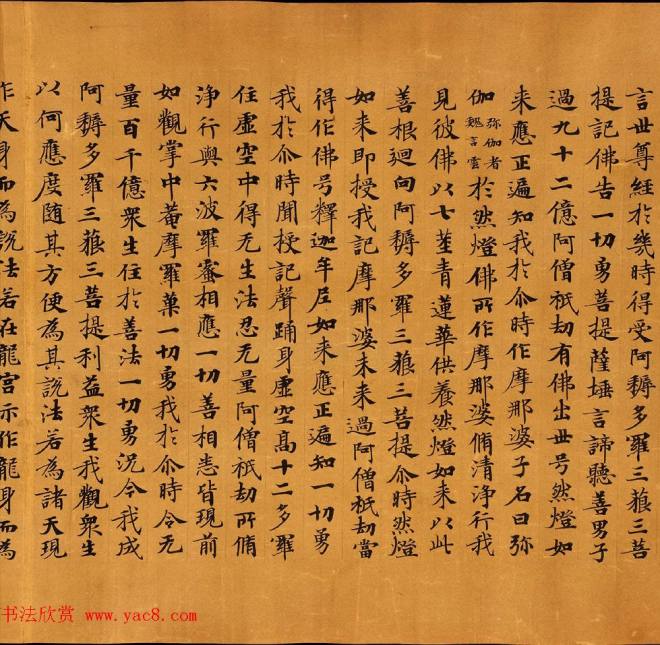 言世尊經於幾時得受阿耨多羅三藐三菩
提記佛告一切勇菩提薩埵言諦聽善男子
過九十二億阿僧祇劫有佛出世号然燈如
来應正遍知我於尒時作摩那婆子名曰弥
伽弥伽者魏言雲於然燈佛所作摩那婆脩清淨行我
見彼佛以七莖青蓮華供養然燈如来以此
善根迴向阿耨多羅三藐三菩提尒時然燈
如来即授我記摩那婆未来過阿僧祇劫當
得作佛号釋迦牟尼如来應正遍知一切勇
我於尒時聞授記聲踊身虛空高十二多羅
住虛空中得无生法忍无量阿僧祇劫所脩
淨行與六波羅蜜相應一切善相悉皆現前
如觀掌中菴摩羅菓一切勇我於尒時令无
量百千億衆生住於善法一切勇況今我成
阿耨多羅三藐三菩提利益衆生我觀衆生
以何應度随其方便為其說法若為諸天現
作天身而為說法若在龍宮示作龍身而為
书法欣赏 www.yac8.com